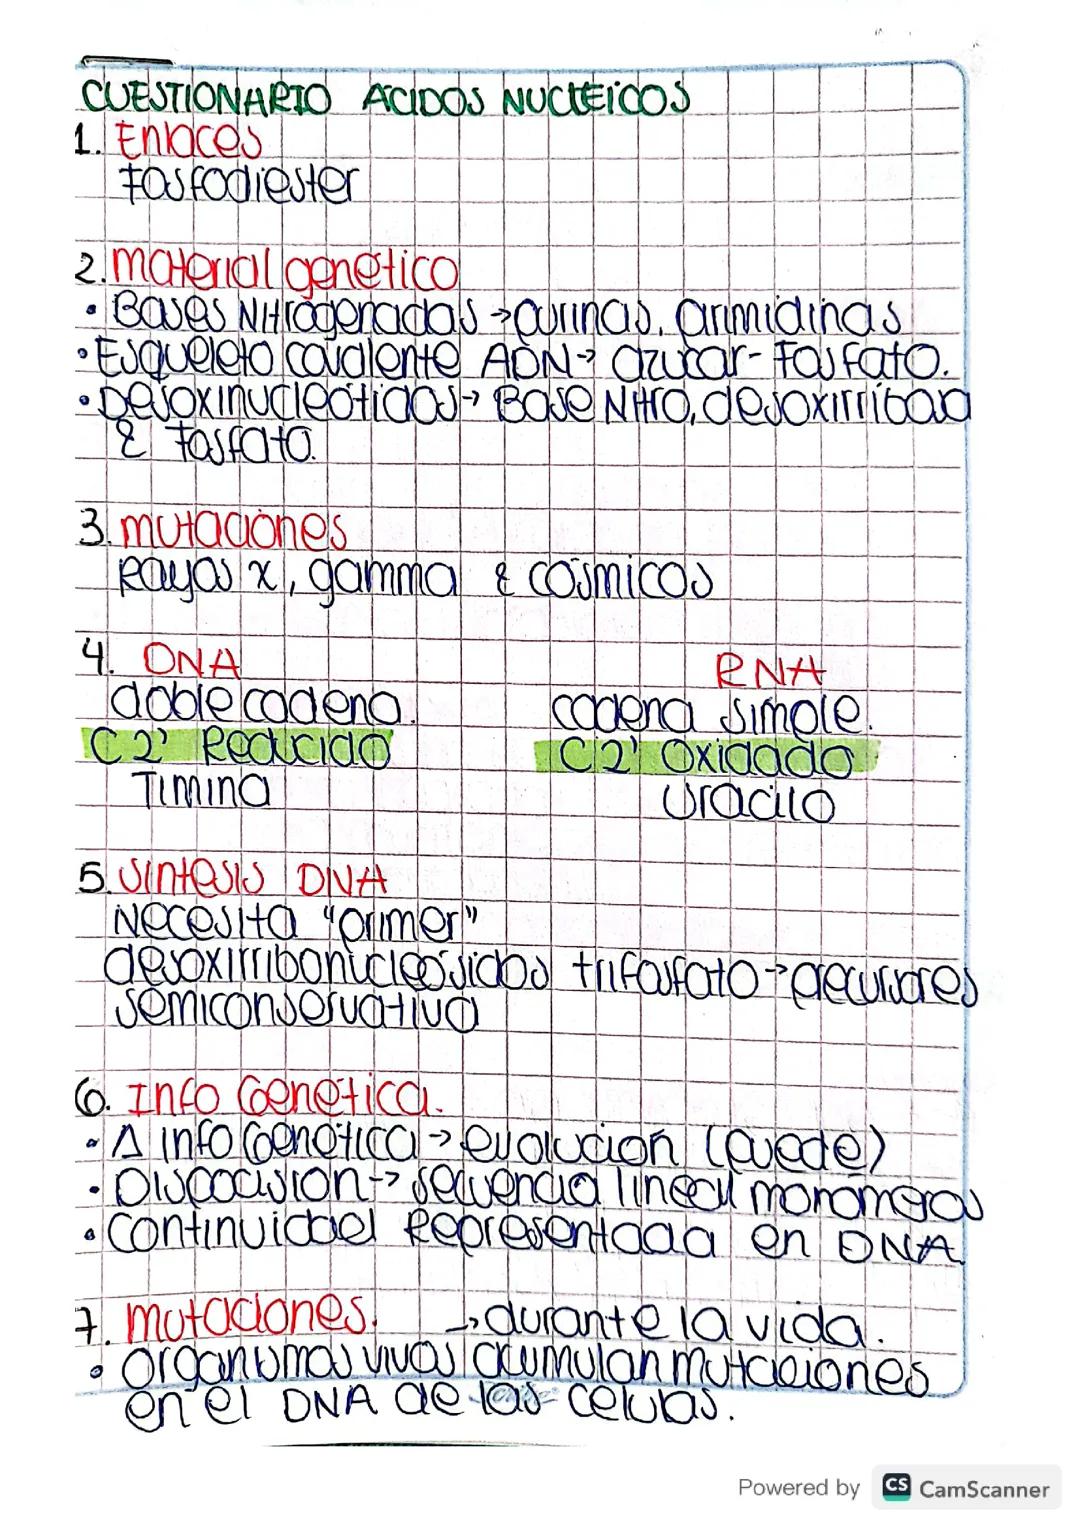 CUESTIONARIO ACIDOS NUCLEICOS
1. Enlaces
Fosfodiester
2. material genético
• Bases Nitrogenadas → purinas, pirimidinas
• Esqueleto covalente ADN → azucar-Fosfato.
• Desoxinucleótidos → Base Nitro, desoxirribosa
& Fosfato.
3. mutaciones
Rayos x, gamma & cósmicos
4. DNA RNA
doble cadena. cadena simple.
C 2' Reducido C 2' Oxidado
Timina Uracilo
5. síntesis DNA
Necesita "primer"
desoxirribonucleósidos trifosfato → precursores
semiconservativa
6. Info Genética.
• Δ info Genética → evolución (puede)
• Disposición → secuencia lineal monómeros
• Continuidad Representada en DNA
7. mutaciones. → durante la vida.
• organismos vivos acumulan mutaciones
en el DNA de las células.
Powered by CS CamScanner